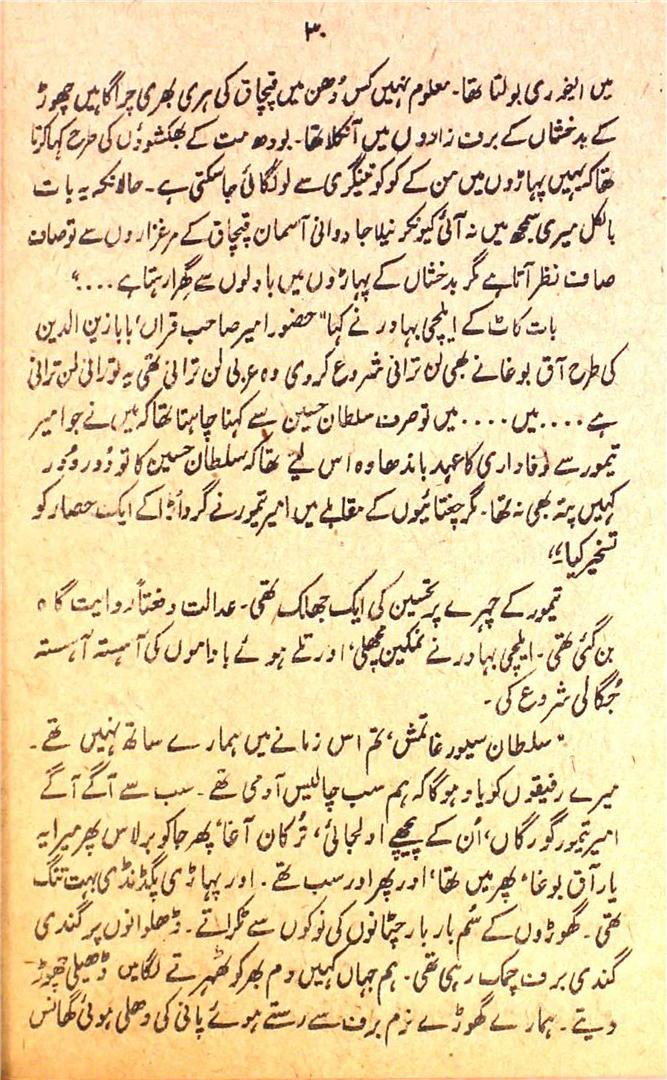 ۳۰
میں ایغوری بولتا تھا۔ معلوم نہیں کس دُھن میں قپچاق کی ہری بھری چراگاہیں چھوڑ
کے بدخشاں کے برف زادوں میں آنکلا تھا۔ بودھ مت کے بھکشوؤں کی طرح کہا کرتا
تھا کہ یہیں پہاڑوں میں من کے کوکوتینگری سے لو لگائی جاسکتی ہے۔ حالانکہ یہ بات
بالکل میری سمجھ میں نہ آئی کیونکہ نیلا جاودانی آسمان قپچاق کے مرغزاروں سے تو صاف
صاف نظر آتا ہے مگر بدخشاں کے پہاڑوں میں بادلوں سے گھرا رہتا ہے....؟
بات کاٹ کے ایلچی بہادر نے کہا "حضور امیر صاحب قراں، بابا زین الدین
کی طرح آق بوغا نے بھی لن ترانی شروع کردی وہ عربی لن ترانی تھی یہ تورانی لن ترانی
ہے.... میں.... میں تو صرف سلطان حسین سے کہنا چاہتا تھا کہ میں نے جو امیر
تیمور سے وفاداری کا عہد باندھا وہ اس لیے تھا کہ سلطان حسین کا تو دُور دُور
کہیں پتہ بھی نہ تھا۔ مگر چغتائیوں کے مقابلے میں امیر تیمور نے گرد اُڑا کے ایک حصار کو
تسخیر کیا۔"
تیمور کے چہرے پر تحسین کی ایک جھلک تھی۔ عدالت دفعتاً روایت گاہ
بن گئی تھی۔ ایلچی بہادر نے نمکین مچھلی، اور تلے ہوئے باداموں کی آہستہ آہستہ
جُگالی شروع کی۔
"سلطان سیور غاتمش، تم اس زمانے میں ہمارے ساتھ نہیں تھے۔
میرے رفیقوں کو یاد ہوگا کہ ہم سب چالیس آدمی تھے۔ سب سے آگے آگے
امیر تیمور گورگاں، اُن کے پیچھے اولجائی، تُرکان آغا، پھر جاکو برلاس پھر میرا یہ
یار آق بوغا، پھر میں تھا، اور پھر اور سب تھے۔ اور پہاڑی پگڈنڈی بہت تنگ
تھی۔ گھوڑوں کے سُم بار بار چٹانوں کی نوکوں سے ٹکراتے۔ ڈھلوانوں پر گندی
گندی برف چمک رہی تھی۔ ہم جہاں کہیں دم بھر کو ٹھہرتے لگامیں ڈھیلی چھوڑ
دیتے۔ ہمارے گھوڑے نرم برف سے رستے ہوئے پانی کی دھلی ہوئی گھانس